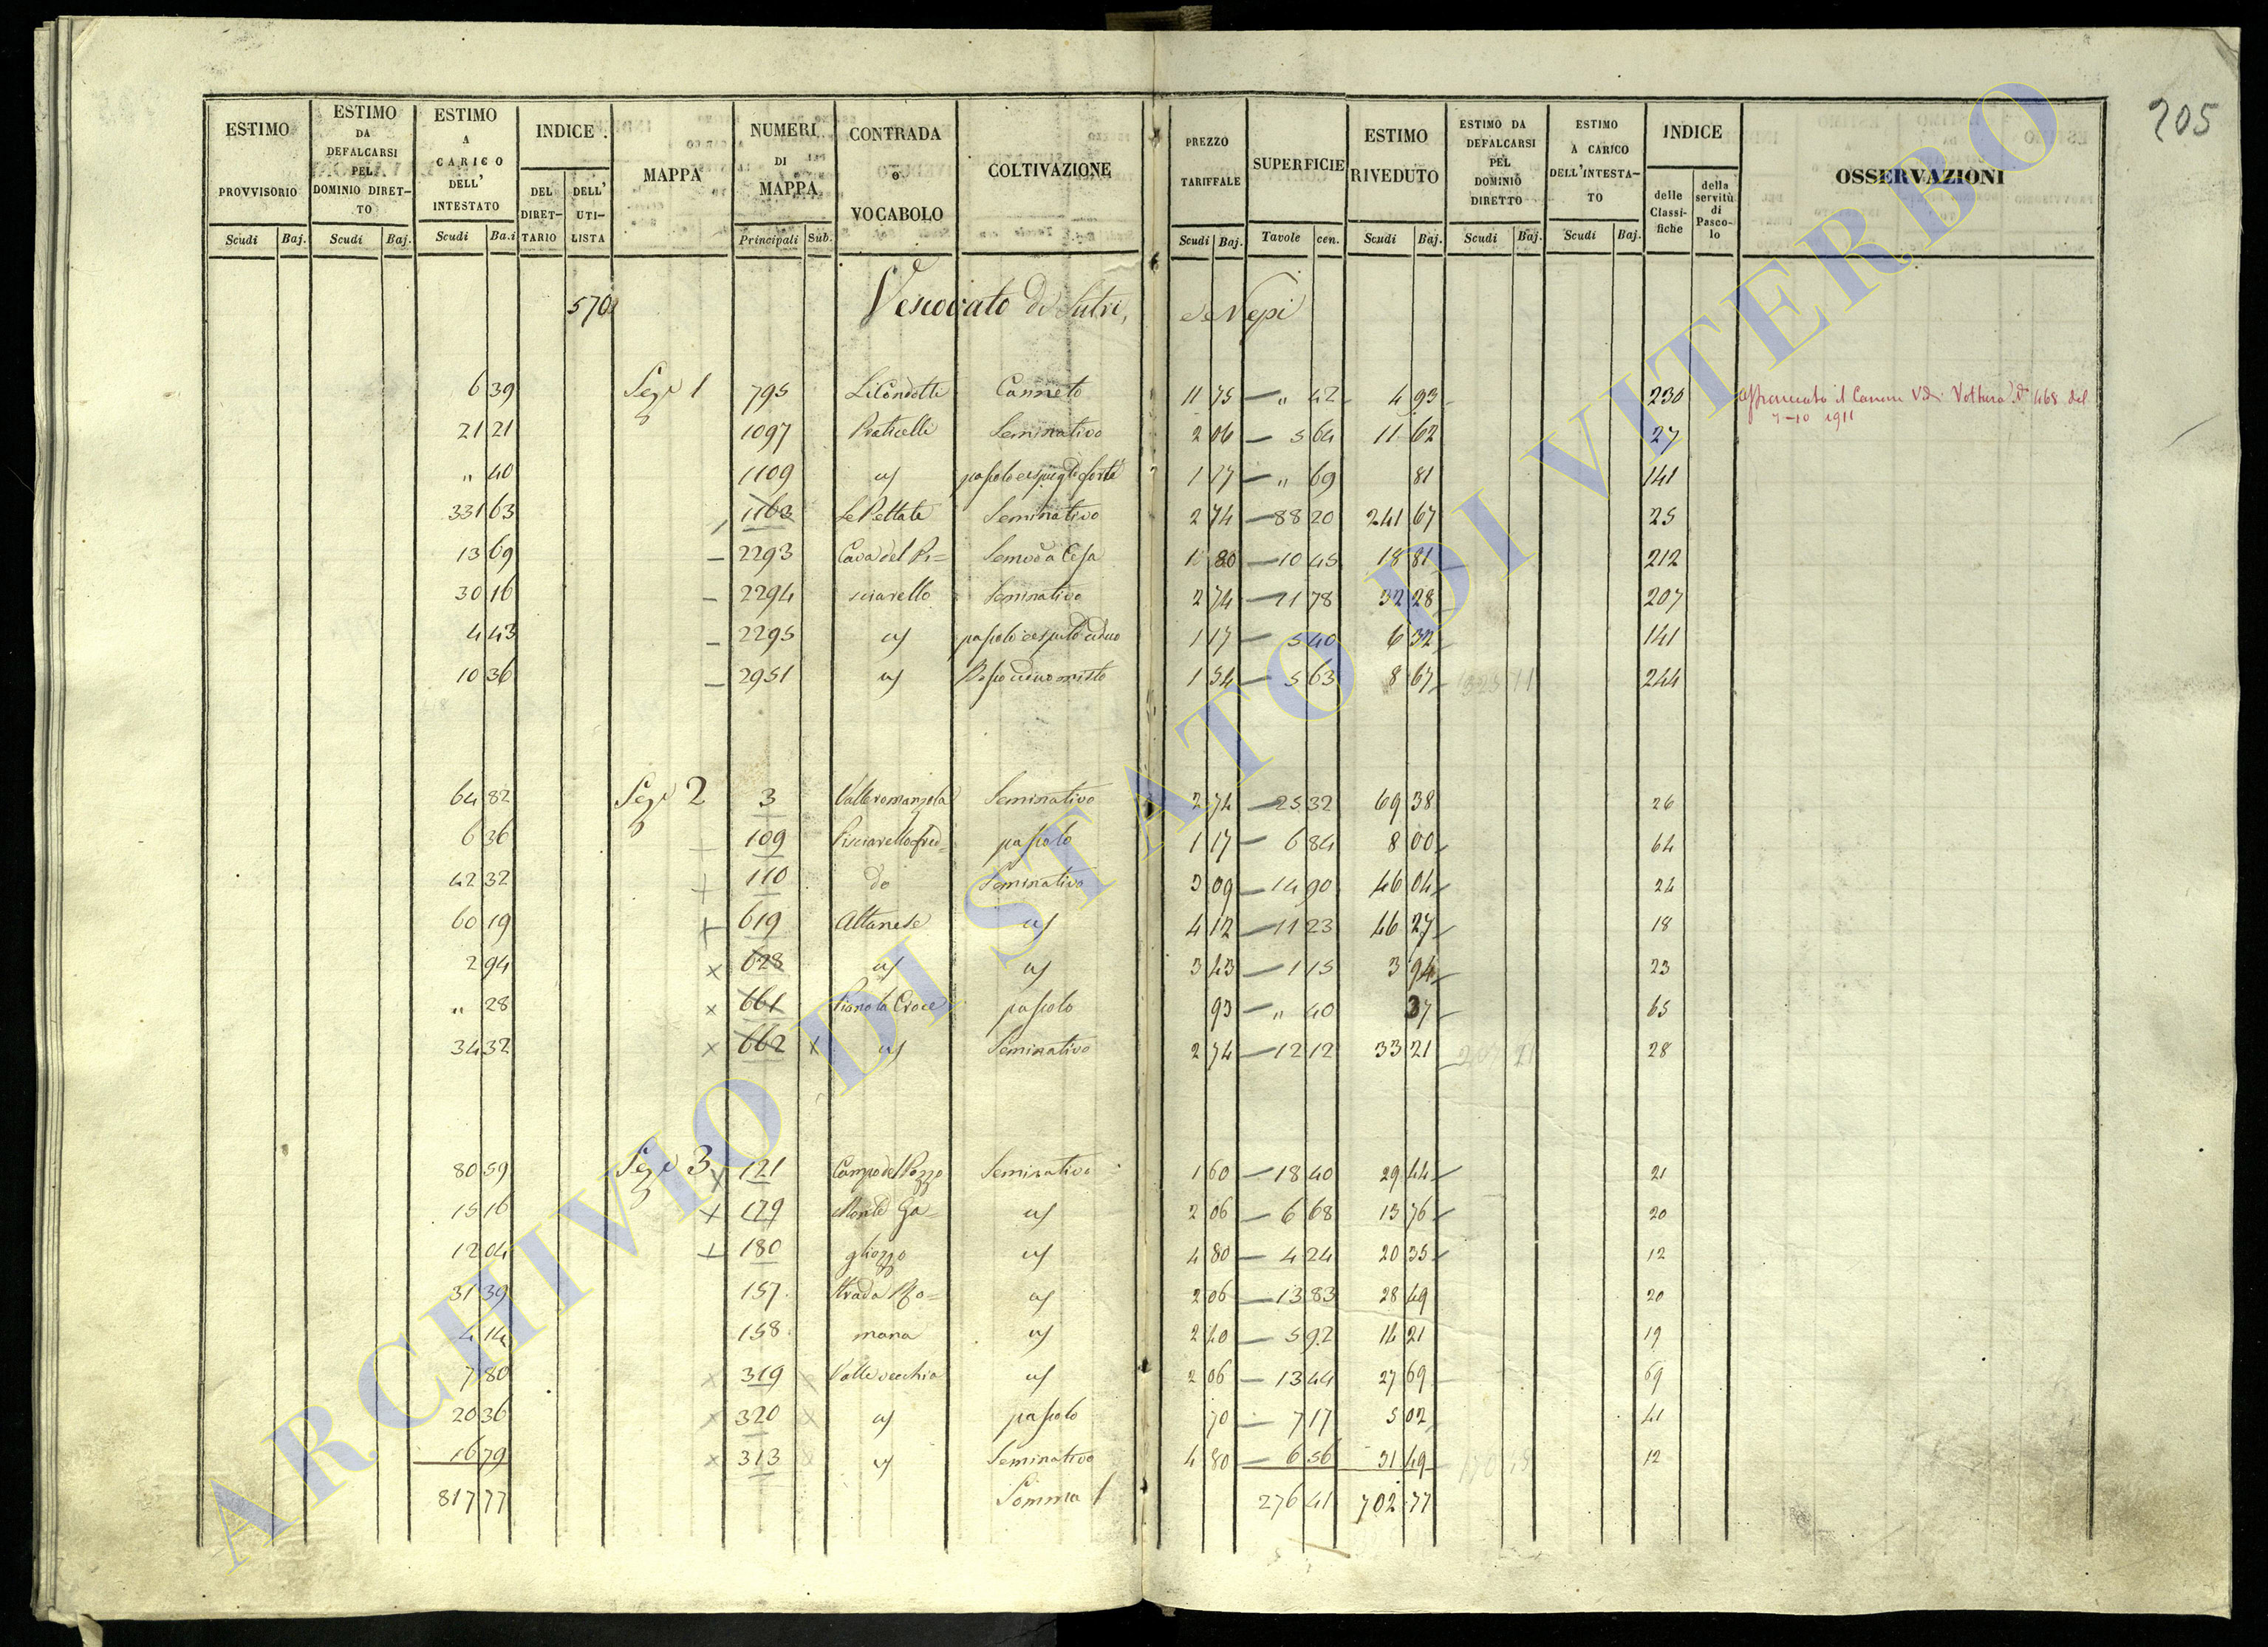 205
ESTIMO PROVVISORIO Scudi Baj. | ESTIMO DA DEFALCARSI PEL DOMINIO DIRET-TO Scudi Baj. | ESTIMO A CARICO DELL' INTESTATO Scudi Ba.i | INDICE DEL DIRET-TARIO DELL' UTI-LISTA | MAPPA | NUMERI DI MAPPA Principali Sub. | CONTRADA o VOCABOLO | COLTIVAZIONE | PREZZO TARIFFALE Scudi Baj. | SUPERFICIE Tavole cen. | ESTIMO RIVEDUTO Scudi Baj. | ESTIMO DA DEFALCARSI PEL DOMINIO DIRETTO Scudi Baj. | ESTIMO A CARICO DELL'INTESTA-TO Scudi Baj. | INDICE delle Classi-fiche della servitù di Pasco-lo | OSSERVAZIONI
570 Vescovato di Sutri, e Nepi
6 39 Seze 1 795 Li Condotti Canneto 11 75 — " 42 4 93 230 affrancato il Canone Vedi Voltura N. 468 del
7-10 1911
21 21 1097 Praticelli Seminativo 2 06 — 5 64 11 62 27
" 40 1109 id pascolo cespugli forte 1 17 — " 69 81 141
331 63 1163 Le Pettate Seminativo 2 74 — 88 20 241 67 25
13 69 — 2293 Cava del Pi= Semvo a Cesa 1 80 — 10 45 18 81 212
30 16 — 2294 sciarello Seminativo 2 74 — 11 78 32 28 207
4 43 — 2295 id pascolo cesputo ceduo 1 17 — 5 40 6 32 141
10 36 — 2951 id Bosco ceduo misto 1 54 — 5 63 8 67 325 11 244
64 82 Seze 2 3 Valle romanzola Seminativo 2 74 — 25 32 69 38 26
6 36 109 Pisciarello fred= pascolo 1 17 — 6 84 8 00 64
42 32 + 110 do Seminativo 3 09 — 14 90 46 04 24
60 19 + 619 Altanese id 4 12 — 11 23 46 27 18
2 94 x 628 id id 3 43 — 1 15 3 94 23
" 28 x 661 Piano la Croce pascolo 93 — " 40 37 65
34 32 x 662 x id Seminativo 2 74 — 12 12 33 21 207 21 28
80 59 Seze 3 x 121 Campo del Pozzo Seminativo 1 60 — 18 40 29 44 21
15 16 + 179 Monte Ga= id 2 06 — 6 68 13 76 20
12 04 + 180 gliozzo id 4 80 — 4 24 20 35 12
31 39 157 Strada Ro= id 2 06 — 13 83 28 49 20
4 14 158 mana id 2 40 — 5 92 14 21 19
7 80 x 319 x Valle vecchia id 2 06 — 13 44 27 69 69
20 36 x 320 x id pascolo 70 — 7 17 5 02 41
16 79 x 313 id Seminativo 4 80 — 6 56 31 49 12
817 77 Somma 276 41 702 77
ARCHIVIO DI STATO DI VITERBO